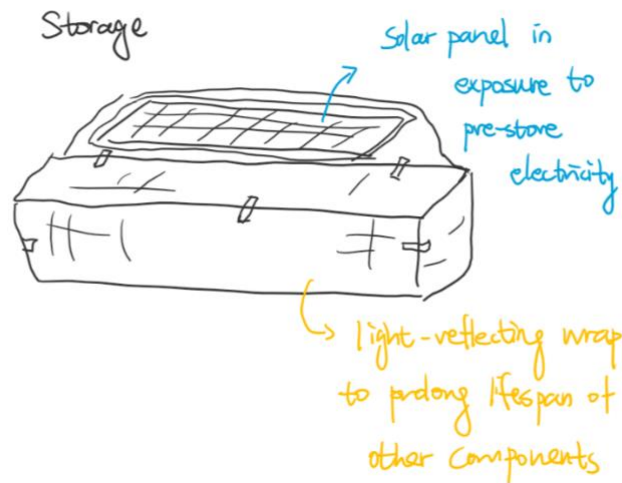 Storage
solar panel in
exposure to
pre-store
electricity
light-reflecting wrap
to prolong lifespan of
other components